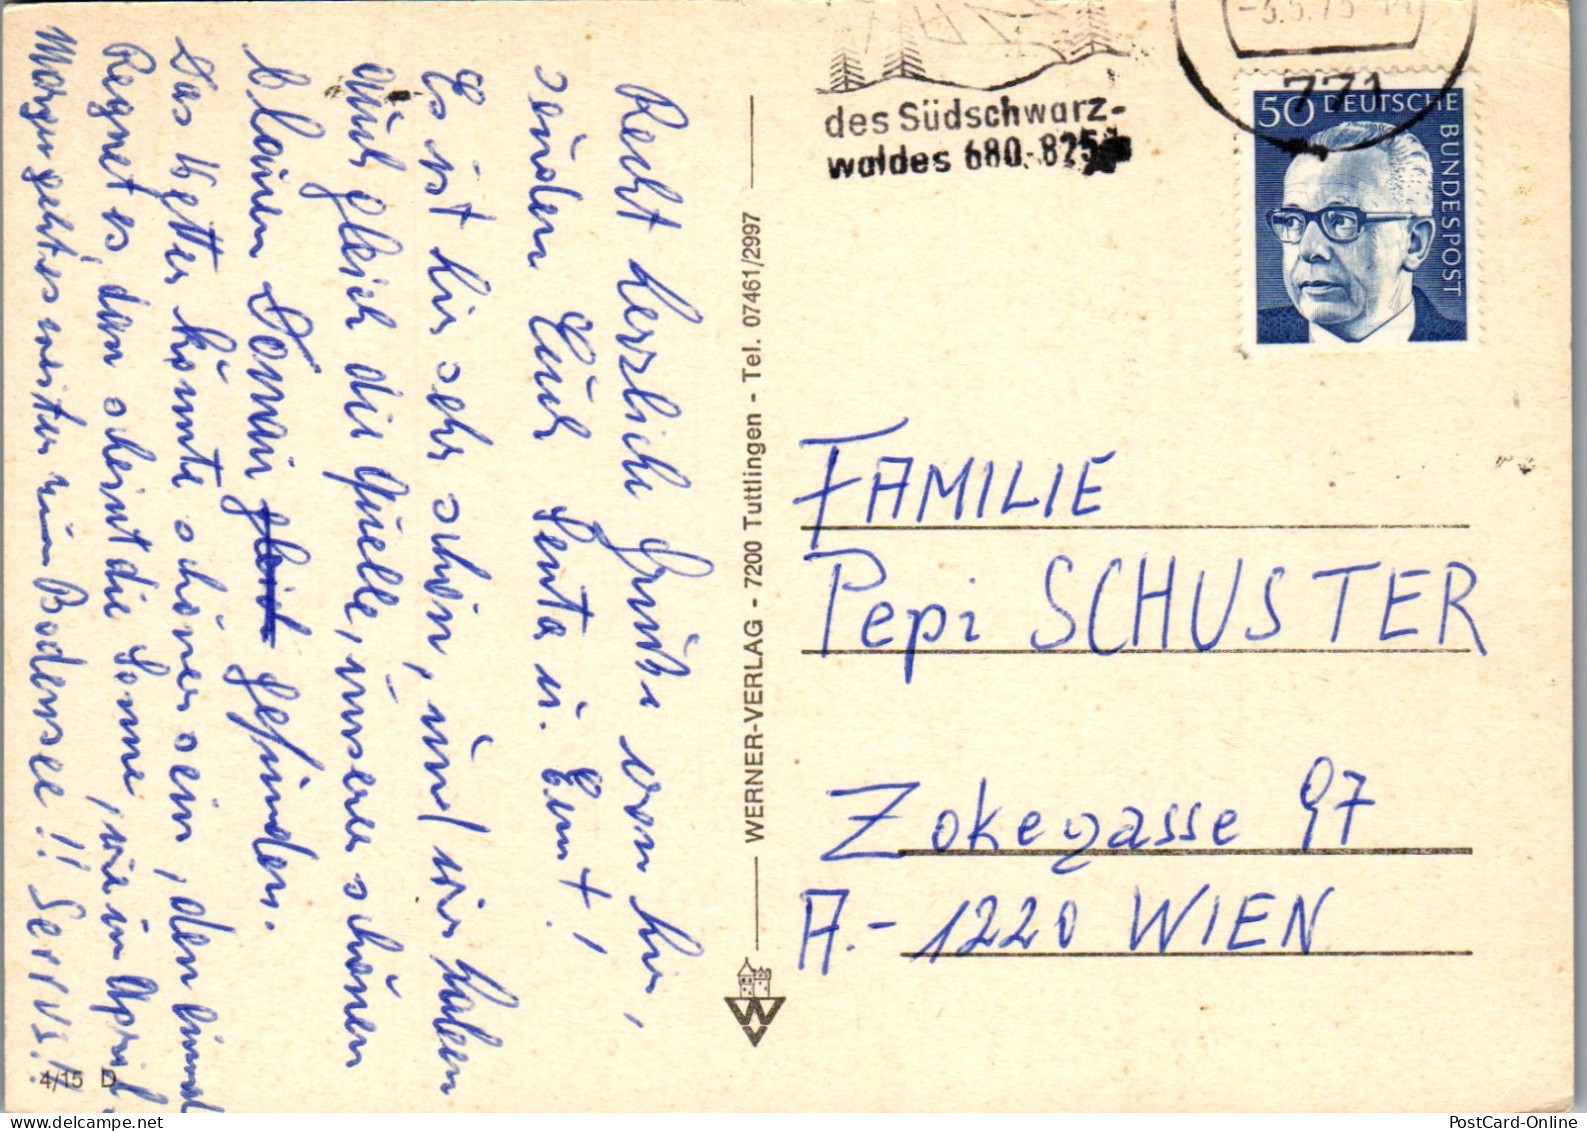 Recht herzliche Grüße von hir,
senden Euch Senta u. Ernst!
Es ist hir sehr schön, und wir haben
auch gleich die Quelle, unserer schönen
blauen Donau gleich gefunden.
Das Wetter könnte schöner sein, den einmal
Regnet es, dan scheint die Sonne, wie im April.
Morgen geht es weiter zum Bodensee!! Servus!
4/15 D
WERNER-VERLAG - 7200 Tuttlingen - Tel. 07461/2997
des Südschwarz-
waldes 680-825
771
50 DEUTSCHE
BUNDESPOST
FAMILIE
Pepi SCHUSTER
Zokegasse 97
A.- 1220 WIEN
PostCard-Online